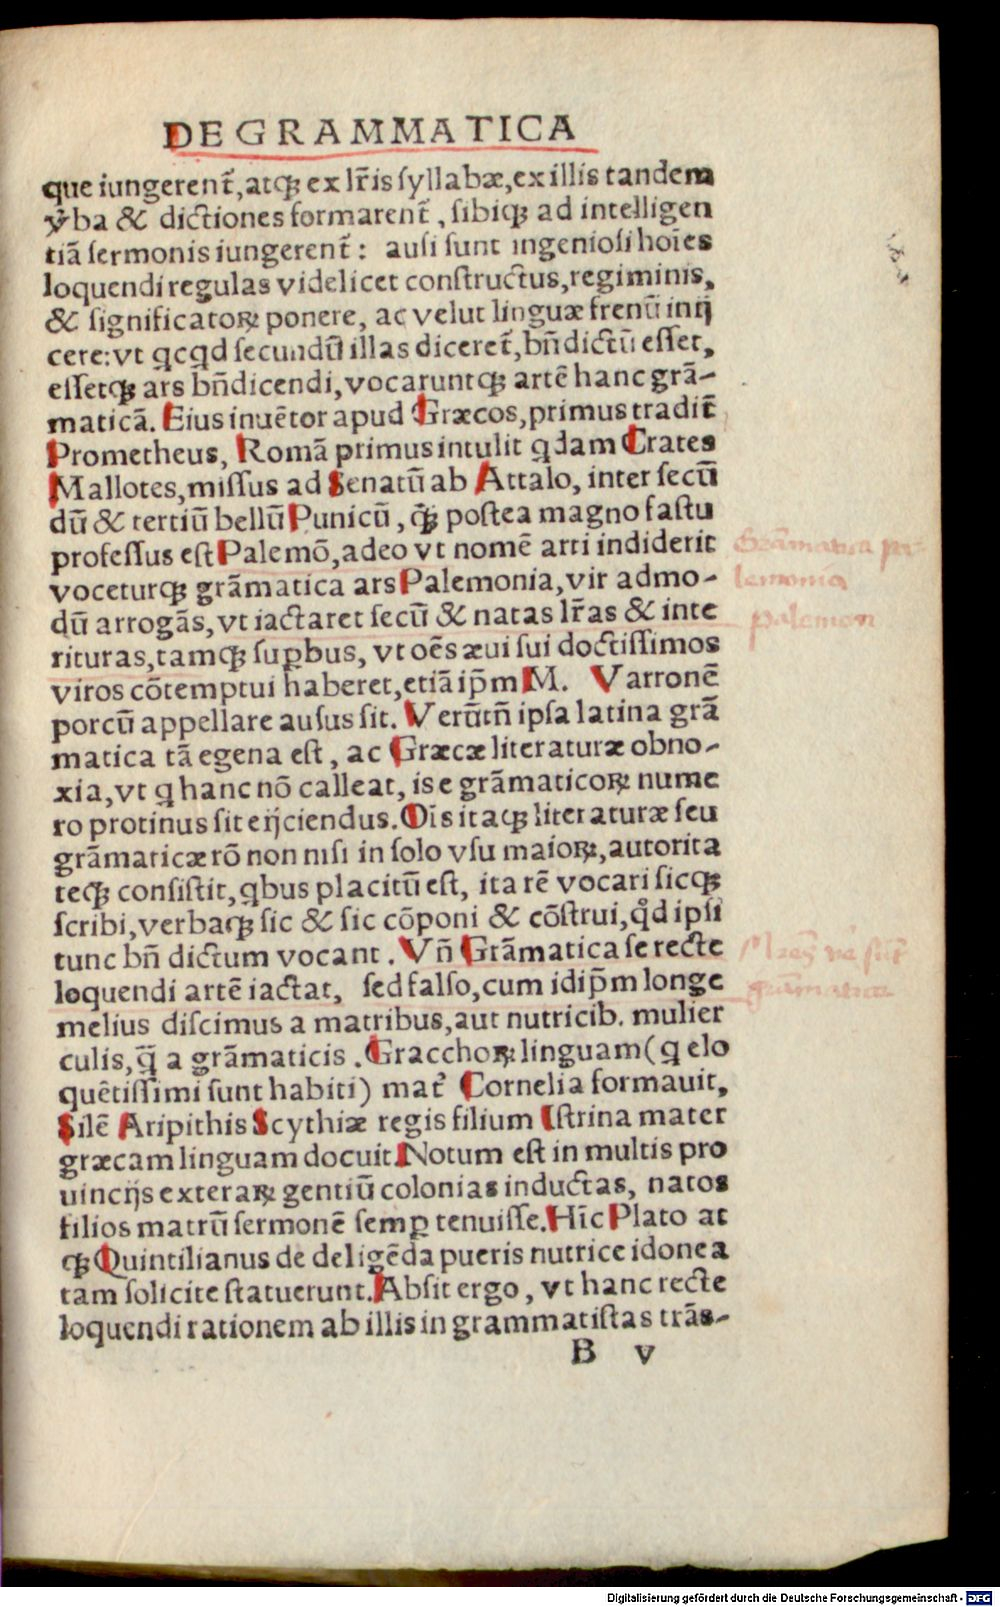 DE GRAMMATICA
que iungerent̃, atqꝫ ex lr̃is syllabæ, ex illis tandem
v̾ba & dictiones formarent̃, sibiqꝫ ad intelligen
tiā sermonis iungerent̃: ausi sunt ingeniosi hoīes
loquendi regulas videlicet constructus, regiminis,
& significatoꝝ ponere, ac velut linguæ frenū inij
cere: vt qcqd secundū illas diceret̃, bñdictū esset,
essetqꝫ ars bñdicendi, vocaruntqꝫ artē hanc grā-
maticā. Eius inuētor apud Græcos, primus tradit̃
Prometheus, Romā primus intulit qdam Crates
Mallotes, missus ad Senatū ab Attalo, inter secū
dū & tertiū bellū Punicū, q̃ꝫ postea magno fastu
professus est Palemō, adeo vt nomē arti indiderit
voceturqꝫ grāmatica ars Palemonia, vir admo-
dū arrogās, vt iactaret secū & natas lr̃as & inte
rituras, tamqꝫ suꝑbus, vt oēs æui sui doctissimos
viros cōtemptui haberet, etiā ip̄m M. Varronē
porcū appellare ausus sit. Verūtñ ipsa latina grā
matica tā egena est, ac Græcæ literaturæ obno-
xia, vt q hanc nō calleat, is e grāmaticoꝝ nume
ro protinus sit eijciendus. Ois itaqꝫ literaturæ seu
grāmaticæ rō non nisi in solo vsu maioꝝ, autorita
teqꝫ consistit, qbus placitū est, ita rē vocari sicqꝫ
scribi, verbaqꝫ sic & sic cōponi & cōstrui, qd ipsi
tunc bñ dictum vocant. Vñ Grāmatica se recte
loquendi artē iactat, sed falso, cum id ip̄m longe
melius discimus a matribus, aut nutricib. mulier
culis, q̄ a grāmaticis. Gracchoꝝ linguam (q elo
quētissimi sunt habiti) mat̾ Cornelia formauit,
Silē Aripithis Scythiæ regis filium Istrina mater
græcam linguam docuit. Notum est in multis pro
uincijs exteraꝝ gentiū colonias inductas, natos
filios matrū sermonē semꝑ tenuisse. Hīc Plato at
qꝫ Quintilianus de deligēda pueris nutrice idonea
tam solicite statuerunt. Absit ergo, vt hanc recte
loquendi rationem ab illis in grammatistas trās-
B v
Grāmatica pa-
lemonia
palemon
grāmatica
Digitalisierung gefördert durch die Deutsche Forschungsgemeinschaft - DFG